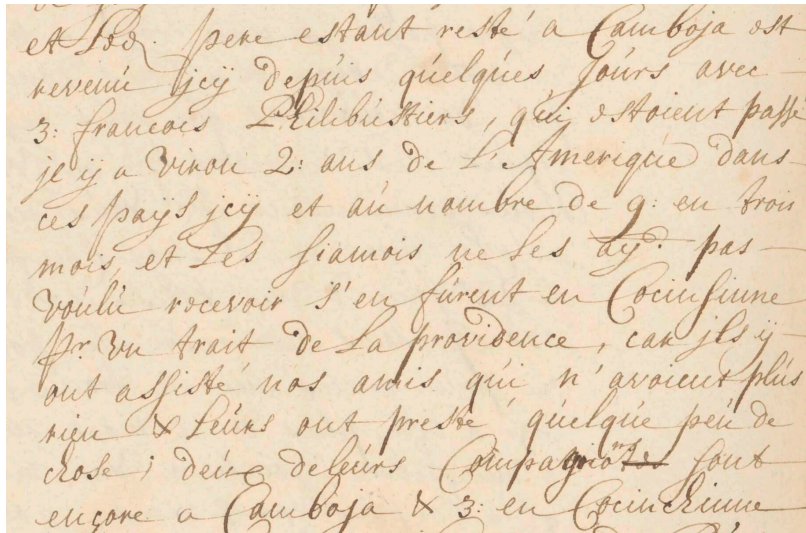 et Led. pere estant resté a Camboja est
revenú jcÿ depúis qúelqúes joúrs avec
3: francois Philibústiers, qúi estoient passé
jl ÿ a viron 2: ans de L'Ameriqúe dans
ces païs jcÿ et aú nombre de 9: en trois
mois, et Les siamois ne les aÿd. pas
voúlú recevoir s'en fúrent en Cocinsinne
pr. vn trait de La providence, car jls ÿ
ont assisté nos amis qúi n'avoient plús
rien & leúrs ont presté qúelqúe peú de
chose; deúx de leúrs Compagnons sont
encore a Camboja & 3: en Cocinchinne